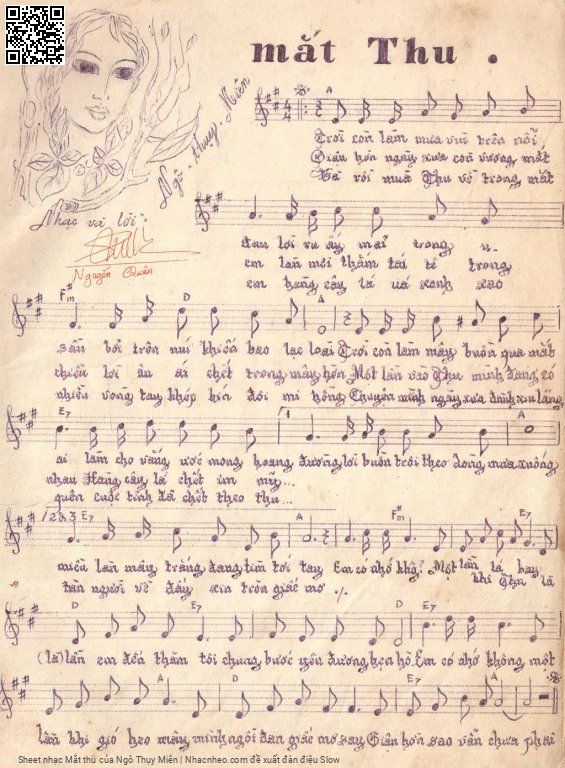 mắt Thu .
Ngô . Thụy . Miên
Trời còn làm mưa vui trên nỗi
Giận hờn ngày xưa còn vương mắt
Và rồi mùa Thu về trong mắt
Nhạc và lời:
Nguyễn Quân
đau lời ru ấy mãi trong u
em làn môi thắm tái tê trong
em hàng cây lá úa xanh xao
F#m D A
sầu bối trôn núi khiến bao lạc loài Trời còn làm mây buồn qua mắt
chiều lời ân ái chết trong mây hờn Một lần vào Thu mình đang có
nhiều vòng tay khép kín đôi mi hồng Chuyện mình ngày xưa đành xin lãng
E7 1 A
ai làm cho vàng ước mong hoang đường lời buồn trôi theo dòng mưa xuống
nhau Hàng cây lá chết im mỹ...
quên cuộc tình đã chết theo thu...
1 2 & 3 E7 A F#m A
miền làn mây trắng đang tìm tới tay Em có nhớ không? Một lần lá bay
tàn người về đây xin tròn giấc mơ khi Thu là
E7 D E7
(là) lần em đến thăm tôi chung bước yêu đương hẹn hò. Em có nhớ không một
A E7 D A
lần khi gió heo mây mình ngồi đan giấc mơ say Giận hờn sao vẫn chưa phai
Sheet nhạc Mắt thu của Ngô Thụy Miên | Nhacnheo.com đề xuất đàn điệu Slow